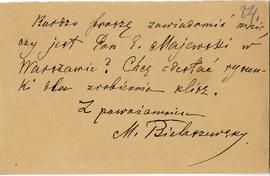 84.
Bardzo proszę zawiadomić mnie
czy jest Pan E. Majewski w
Warszawie? Chcę odesłać rysun-
ki dla zrobienia klisz.
Z poważaniem
M.